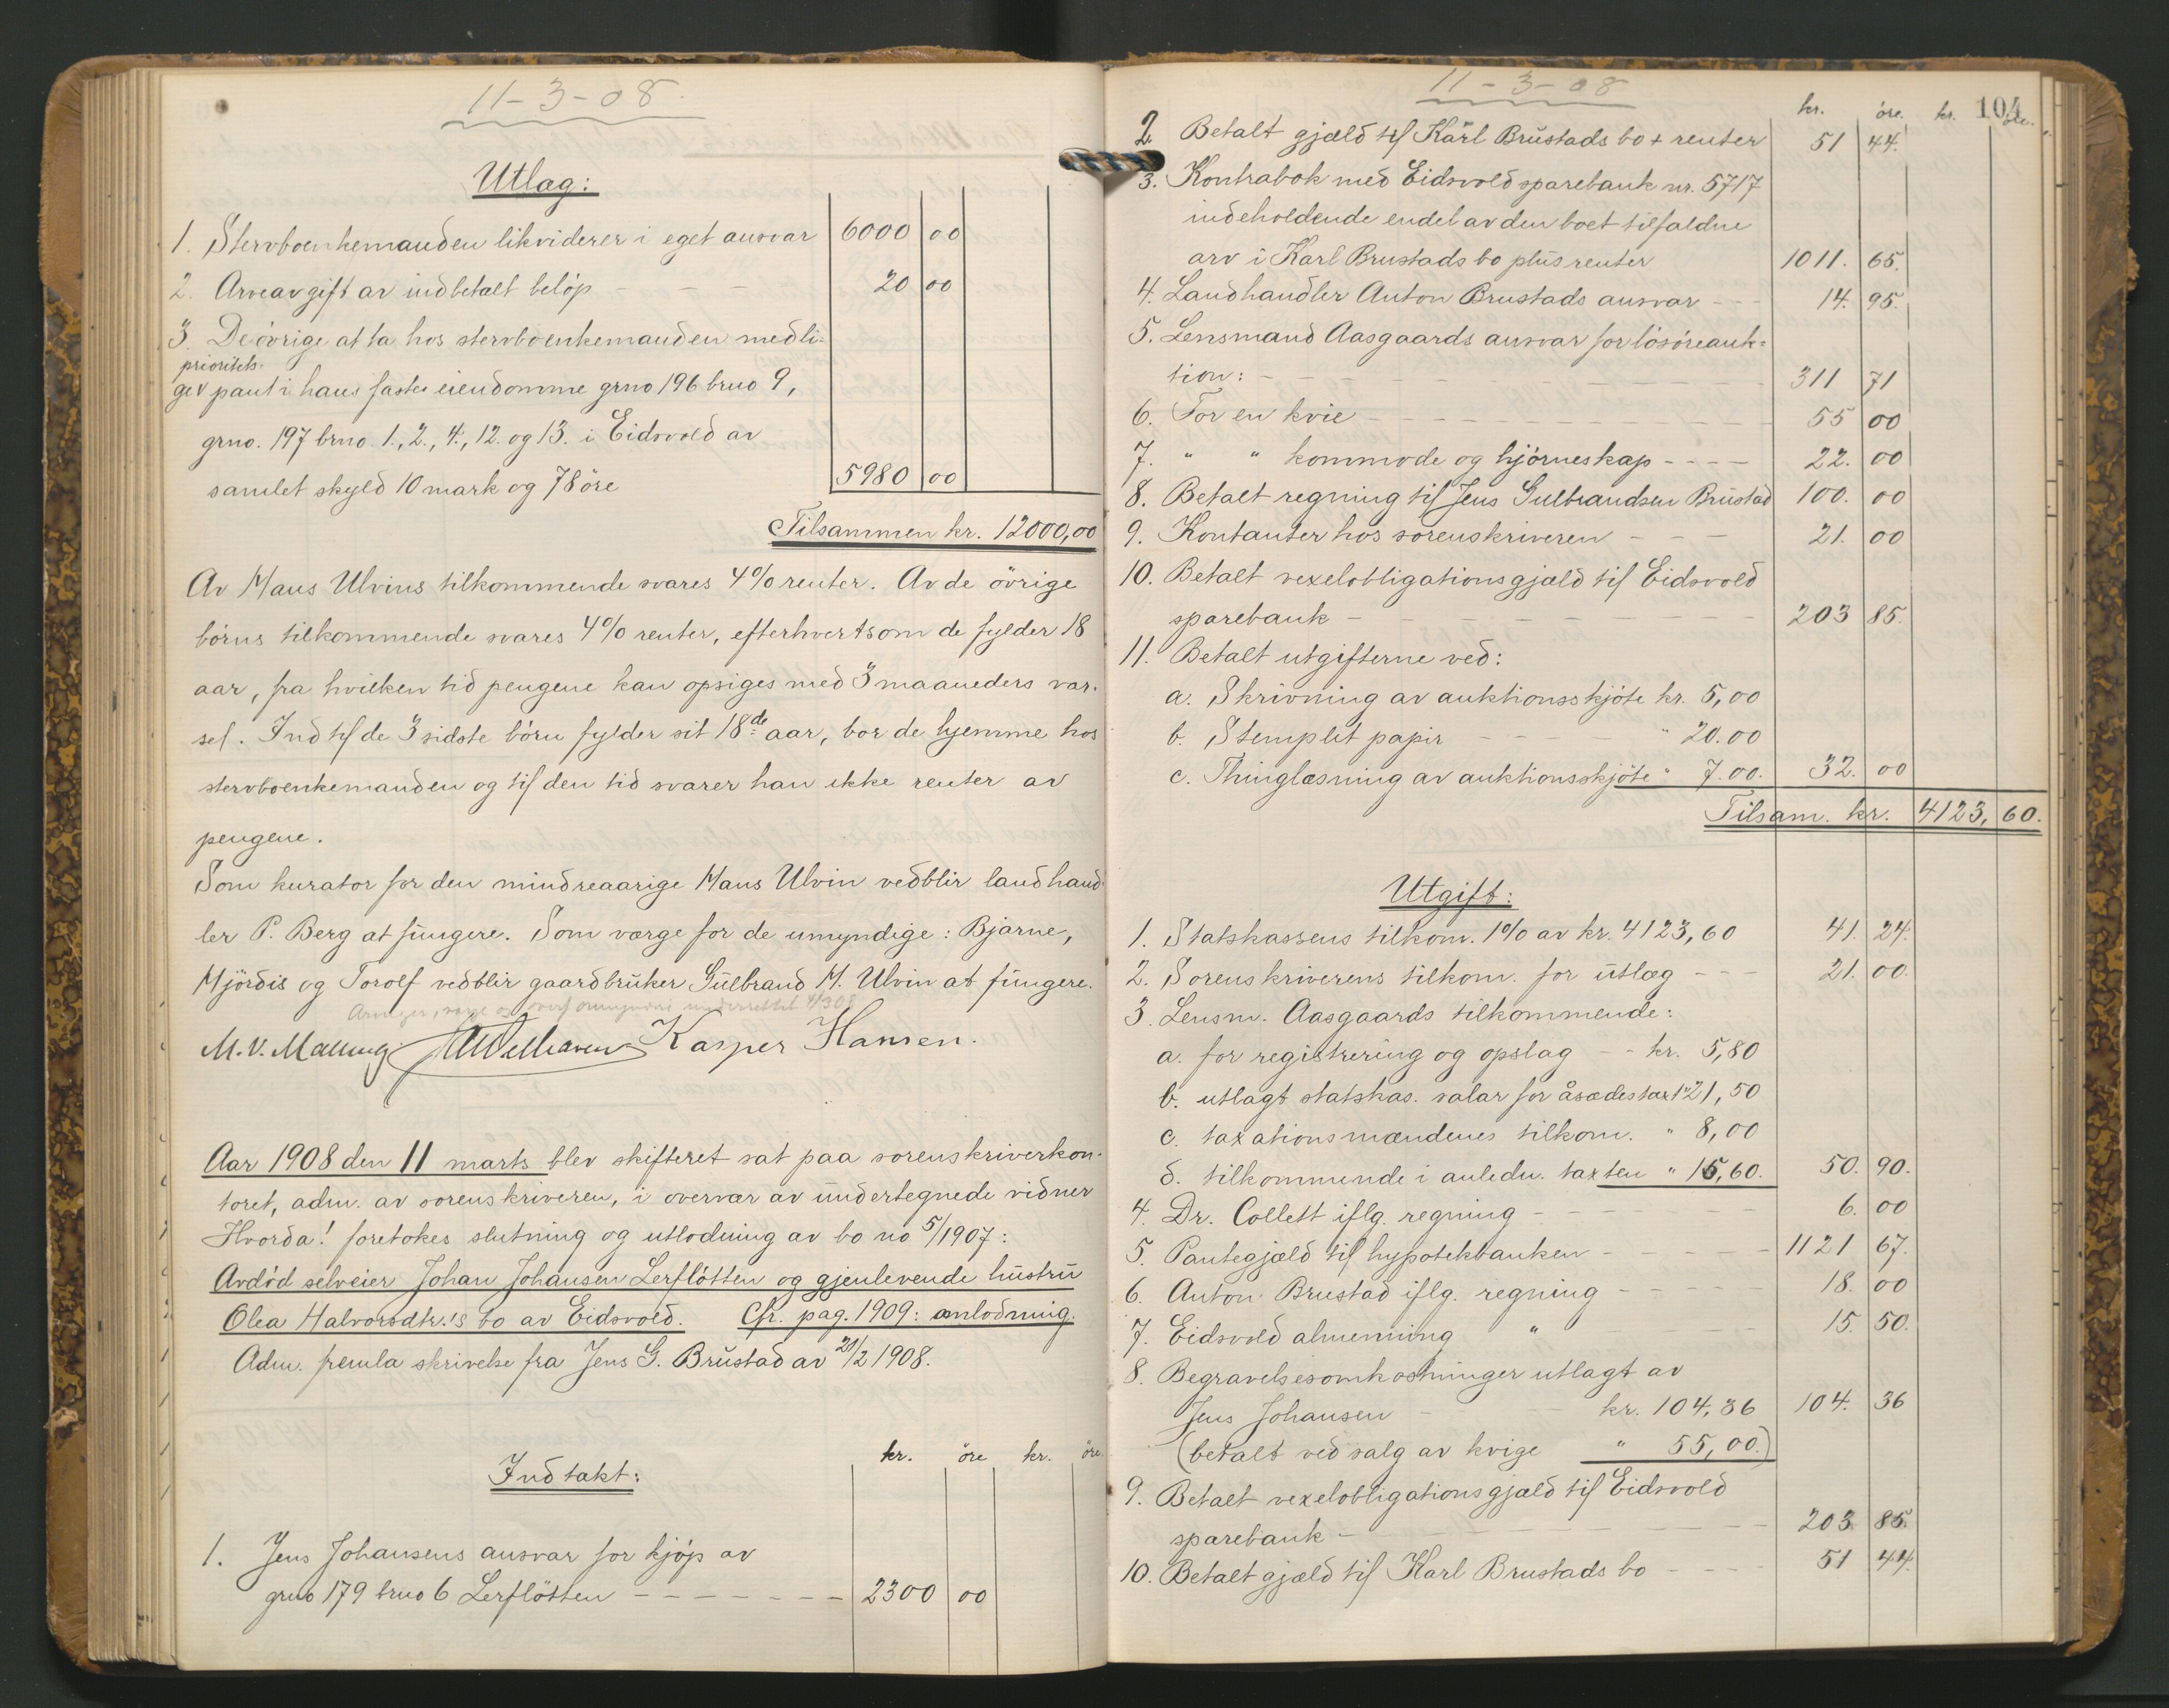 11-3-08.
Utlæg:
1. Stervboenkemanden likviderer i eget ansvar 6000 00
2. Arveavgift av indbetalt beløp - - - 20 00
3. De övrige at ta hos stervboenkemanden med li-
prioritets-
gev pant i hans faste eiendomme grno 196 brno 9,
grno. 197 brno 1., 2., 4., 12. og 13. i Eidsvold av
samlet skyld 10 mark og 78 öre 5980 00
Tilsammen kr. 12000,00
Av Hans Ulvins tilkommende svares 4% renter. Av de övrige
börns tilkommende svares 4% renter, efterhvert som de fylder 18
aar, fra hvilken tid pengene kan opsiges med 3 maaneders var-
sel. Indtil de 3 sidste börn fylder sit 18de aar, bor de hjemme hos
stervboenkemanden og til den tid svarer han ikke renter av
pengene.
Som kurator for den mindreaarige Hans Ulvin vedblir landhand-
ler P. Berg at fungere. Som værge for de umyndige: Bjarne,
Hjördis og Torolf vedblir gaardbruker Gulbrand H. Ulvin at fungere.
M.V. Malling Kasper Hansen.
Aar 1908 den 11 marts blev skifteret sat paa sorenskriverkon-
toret, adm. av sorenskriveren, i overvær av undertegnede vidner
Hvorda! foretokes slutning og utlodning av bo no 5/1907:
Avdöd selveier Johan Johansen Lerflötten og gjenlevende hustru
Olea Halvorsdtr.'s bo av Eidsvold. Cfr. pag. 1909: omlodning.
Adm. fremla skrivelse fra Jens G. Brustad av 21/2 1908.
kr. öre kr. öre
Indtakt:
1. Jens Johansens ansvar for kjöp av
grno 179 brno 6 Lerflötten - - - - - - - 2300 00
11-3-08
104
kr. öre. kr. öre.
2. Betalt gjæld til Karl Brustads bo + renter 51 44.
3. Kontrabok med Eidsvold sparebank nr. 5717
indeholdende endel av den boet tilfaldne
arv i Karl Brustads bo plus renter 1011. 65.
4. Landhandler Anton Brustads ansvar - - 14. 95.
5. Lensmand Aasgaards ansvar for lösöreauk-
tion: - - - - - 311 71
6. For en kvie - - - - - 55 00
7. " " kommode og hjörneskap - - - - 22. 00
8. Betalt regning til Jens Gulbrandsen Brustad 100. 00
9. Kontanter hos sorenskriveren - - - 21. 00
10. Betalt vexelobligationsgjæld til Eidsvold
sparebank - - - - - 203 85.
11. Betalt utgifterne ved:
a. Skrivning av auktionsskjöte kr. 5,00
b. Stemplet papir - - - - " 20.00
c. Thinglæsning av auktionsskjöte " 7.00. 32. 00
Tilsam. kr. 4123, 60.
Utgift:
1. Statskassens tilkom. 1% av kr. 4123,60 41. 24.
2. Sorenskriverens tilkom. for utlæg - - - 21. 00.
3. Lensm. Aasgaards tilkommende:
a. for registrering og opslag - - kr. 5,80
b. utlagt statskas. salær for åsædestaxt " 21,50
c. taxationsmændenes tilkom. " 8,00
d. tilkommende i anledn. taxten " 15,60. 50. 90.
4. Dr. Collett iflg. regning - - - - - 6. 00
5. Pantegjæld til hypotekbanken - - - - - 1121 67.
6. Anton Brustad iflg. regning - - - - - 18. 00
7. Eidsvold almenning " - - - 15. 50.
8. Begravelsesomkostninger utlagt av
Jens Johansen - - kr. 104,36 104. 36
(betalt ved salg av kvige " 55,00.)
9. Betalt vexelobligationsgjæld til Eidsvold
sparebank - - - - - 203 85.
10. Betalt gjæld til Karl Brustads bo - - - 51 44.